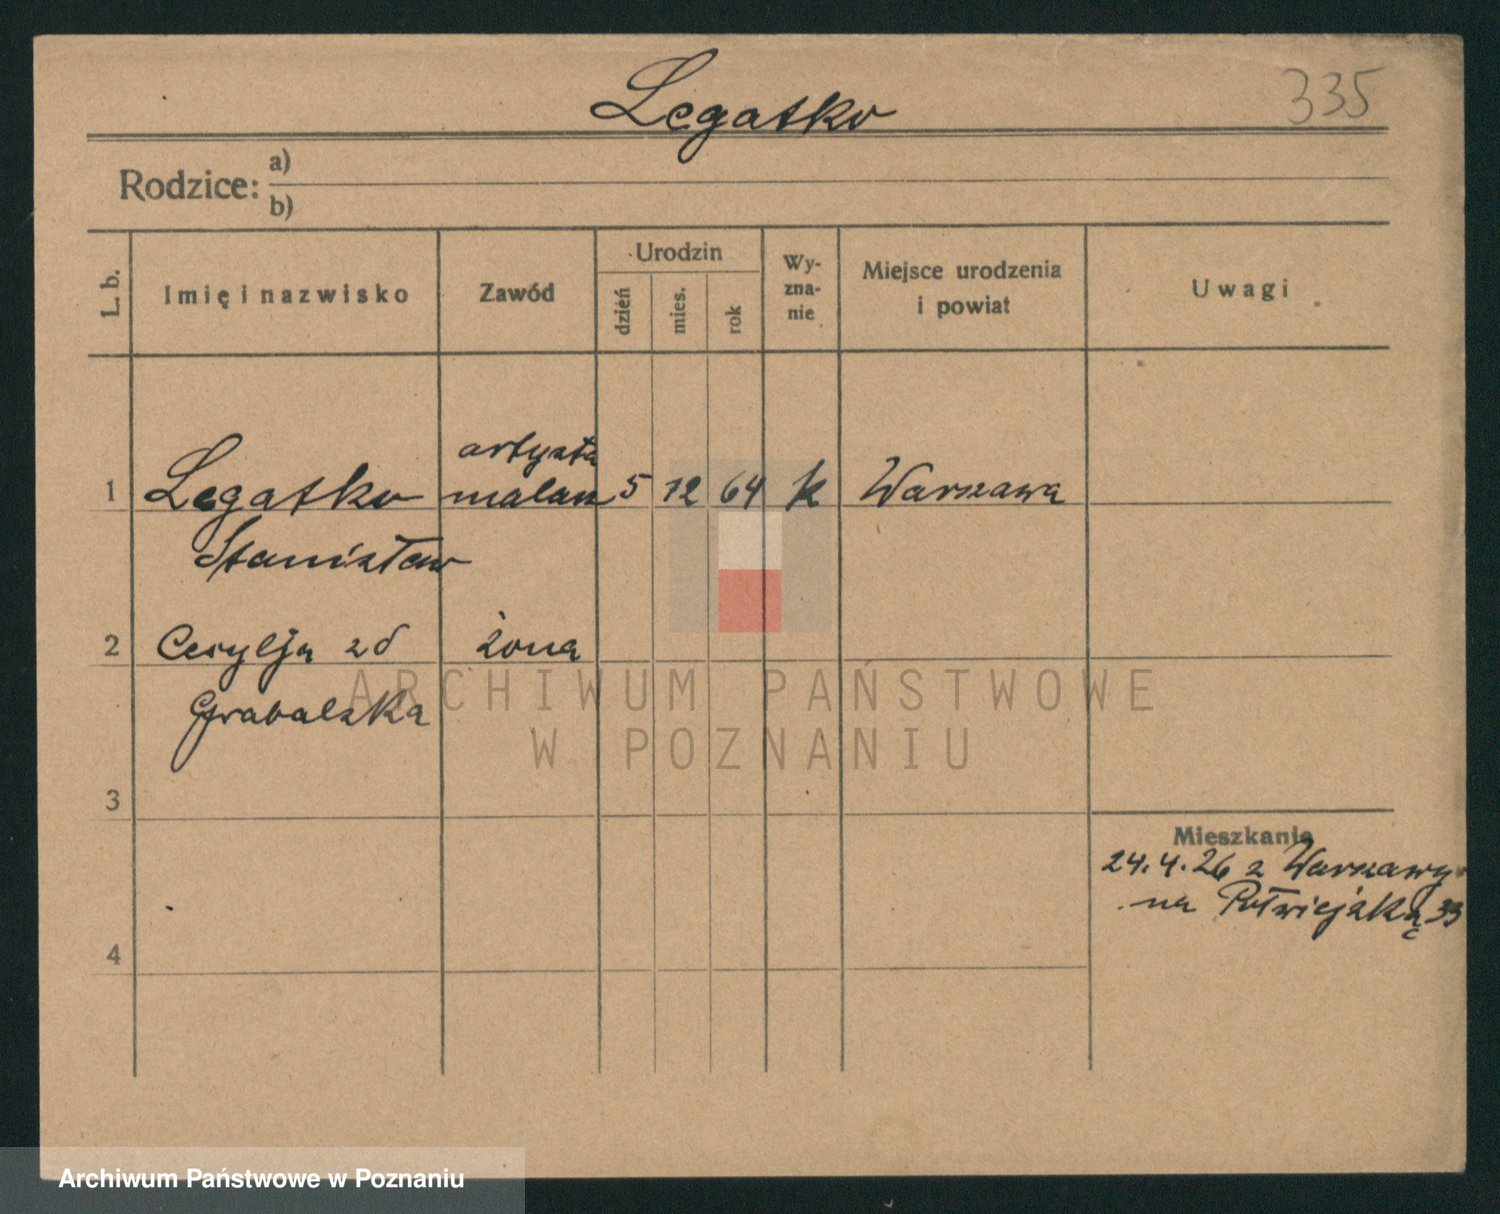 Legatko
335
Rodzice: a)
b)
L. b.
Imię i nazwisko
Zawód
Urodzin
dzień
mies.
rok
Wy-
zna-
nie
Miejsce urodzenia
i powiat
Uwagi
artysta
1 Legatko malarz 5 12 64 k Warszawa
Stanisław
2 Cecylja zd żona
Grabalska
3
Mieszkanie
24.4.26 z Warszawy
na Półwiejską 33
4
ARCHIWUM PAŃSTWOWE
W POZNANIU
Archiwum Państwowe w Poznaniu